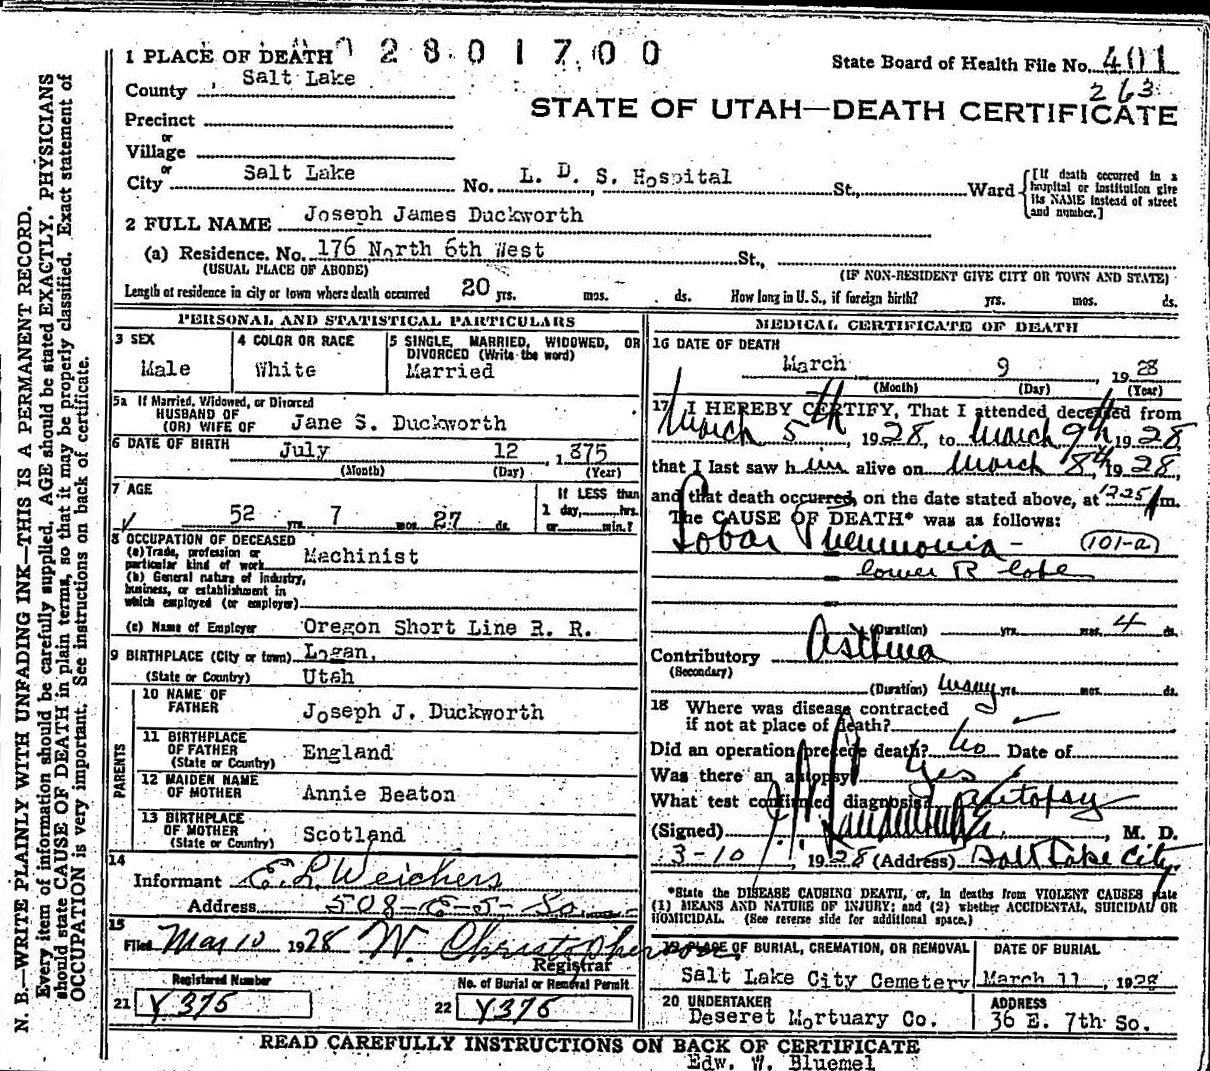 1 PLACE OF DEATH 0 2 8 0 1 7 0 0
State Board of Health File No. 401
County Salt Lake
263
STATE OF UTAH—DEATH CERTIFICATE
Precinct
or
Village
or
City Salt Lake No. L. D. S. Hospital St., Ward
[If death occurred in a
hospital or institution give
its NAME instead of street
and number.]
2 FULL NAME Joseph James Duckworth
(a) Residence. No. 176 North 6th West St.,
(USUAL PLACE OF ABODE) (IF NON-RESIDENT GIVE CITY OR TOWN AND STATE)
Length of residence in city or town where death occurred 20 yrs. mos. ds. How long in U. S., if foreign birth? yrs. mos. ds.
PERSONAL AND STATISTICAL PARTICULARS
3 SEX
Male
4 COLOR OR RACE
White
5 SINGLE, MARRIED, WIDOWED, OR
DIVORCED (Write the word)
Married
5a If Married, Widowed, or Divorced
HUSBAND OF
(OR) WIFE OF Jane S. Duckworth
6 DATE OF BIRTH July 12, 1875
(Month) (Day) (Year)
7 AGE
52 yrs. 7 mos. 27 ds.
If LESS than
1 day, hrs.
or min.?
8 OCCUPATION OF DECEASED
(a) Trade, profession or
particular kind of work Machinist
(b) General nature of industry,
business, or establishment in
which employed (or employer)
(c) Name of Employer Oregon Short Line R. R.
9 BIRTHPLACE (City or town) Logan,
(State or Country) Utah
PARENTS
10 NAME OF
FATHER Joseph J. Duckworth
11 BIRTHPLACE
OF FATHER England
(State or Country)
12 MAIDEN NAME
OF MOTHER Annie Beaton
13 BIRTHPLACE
OF MOTHER Scotland
(State or Country)
14
Informant E. L. Weichers
Address 508-E-5-So
15
Filed Mar 10 1928 W. Christopherson
Registrar
Registered Number
21 Y 375
No. of Burial or Removal Permit
22 Y376
MEDICAL CERTIFICATE OF DEATH
16 DATE OF DEATH
March 9, 1928
(Month) (Day) (Year)
17 I HEREBY CERTIFY, That I attended deceased from
March 5th, 1928, to March 9th 1928
that I last saw him alive on March 8th 1928,
and that death occurred, on the date stated above, at 1225 m.
The CAUSE OF DEATH* was as follows:
Lobar Pneumonia - (101-a)
lower R lobe
(Duration) yrs. mos. 4 ds.
Contributory Asthma
(Secondary)
(Duration) many yrs. mos. ds.
18 Where was disease contracted
if not at place of death?
Did an operation precede death? No Date of
Was there an autopsy? Yes
What test confirmed diagnosis? Autopsy
(Signed) M. D.
3-10, 1928 (Address) Salt Lake City
*State the DISEASE CAUSING DEATH, or, in deaths from VIOLENT CAUSES state
(1) MEANS AND NATURE OF INJURY; and (2) whether ACCIDENTAL, SUICIDAL OR
HOMICIDAL. (See reverse side for additional space.)
19 PLACE OF BURIAL, CREMATION, OR REMOVAL
Salt Lake City Cemetery
DATE OF BURIAL
March 11, 1928
20 UNDERTAKER
Deseret Mortuary Co.
ADDRESS
36 E. 7th So.
READ CAREFULLY INSTRUCTIONS ON BACK OF CERTIFICATE
Edw. W. Bluemel
N. B.—WRITE PLAINLY WITH UNFADING INK—THIS IS A PERMANENT RECORD.
Every item of information should be carefully supplied. AGE should be stated EXACTLY. PHYSICIANS
should state CAUSE OF DEATH in plain terms, so that it may be properly classified. Exact statement of
OCCUPATION is very important. See instructions on back of certificate.